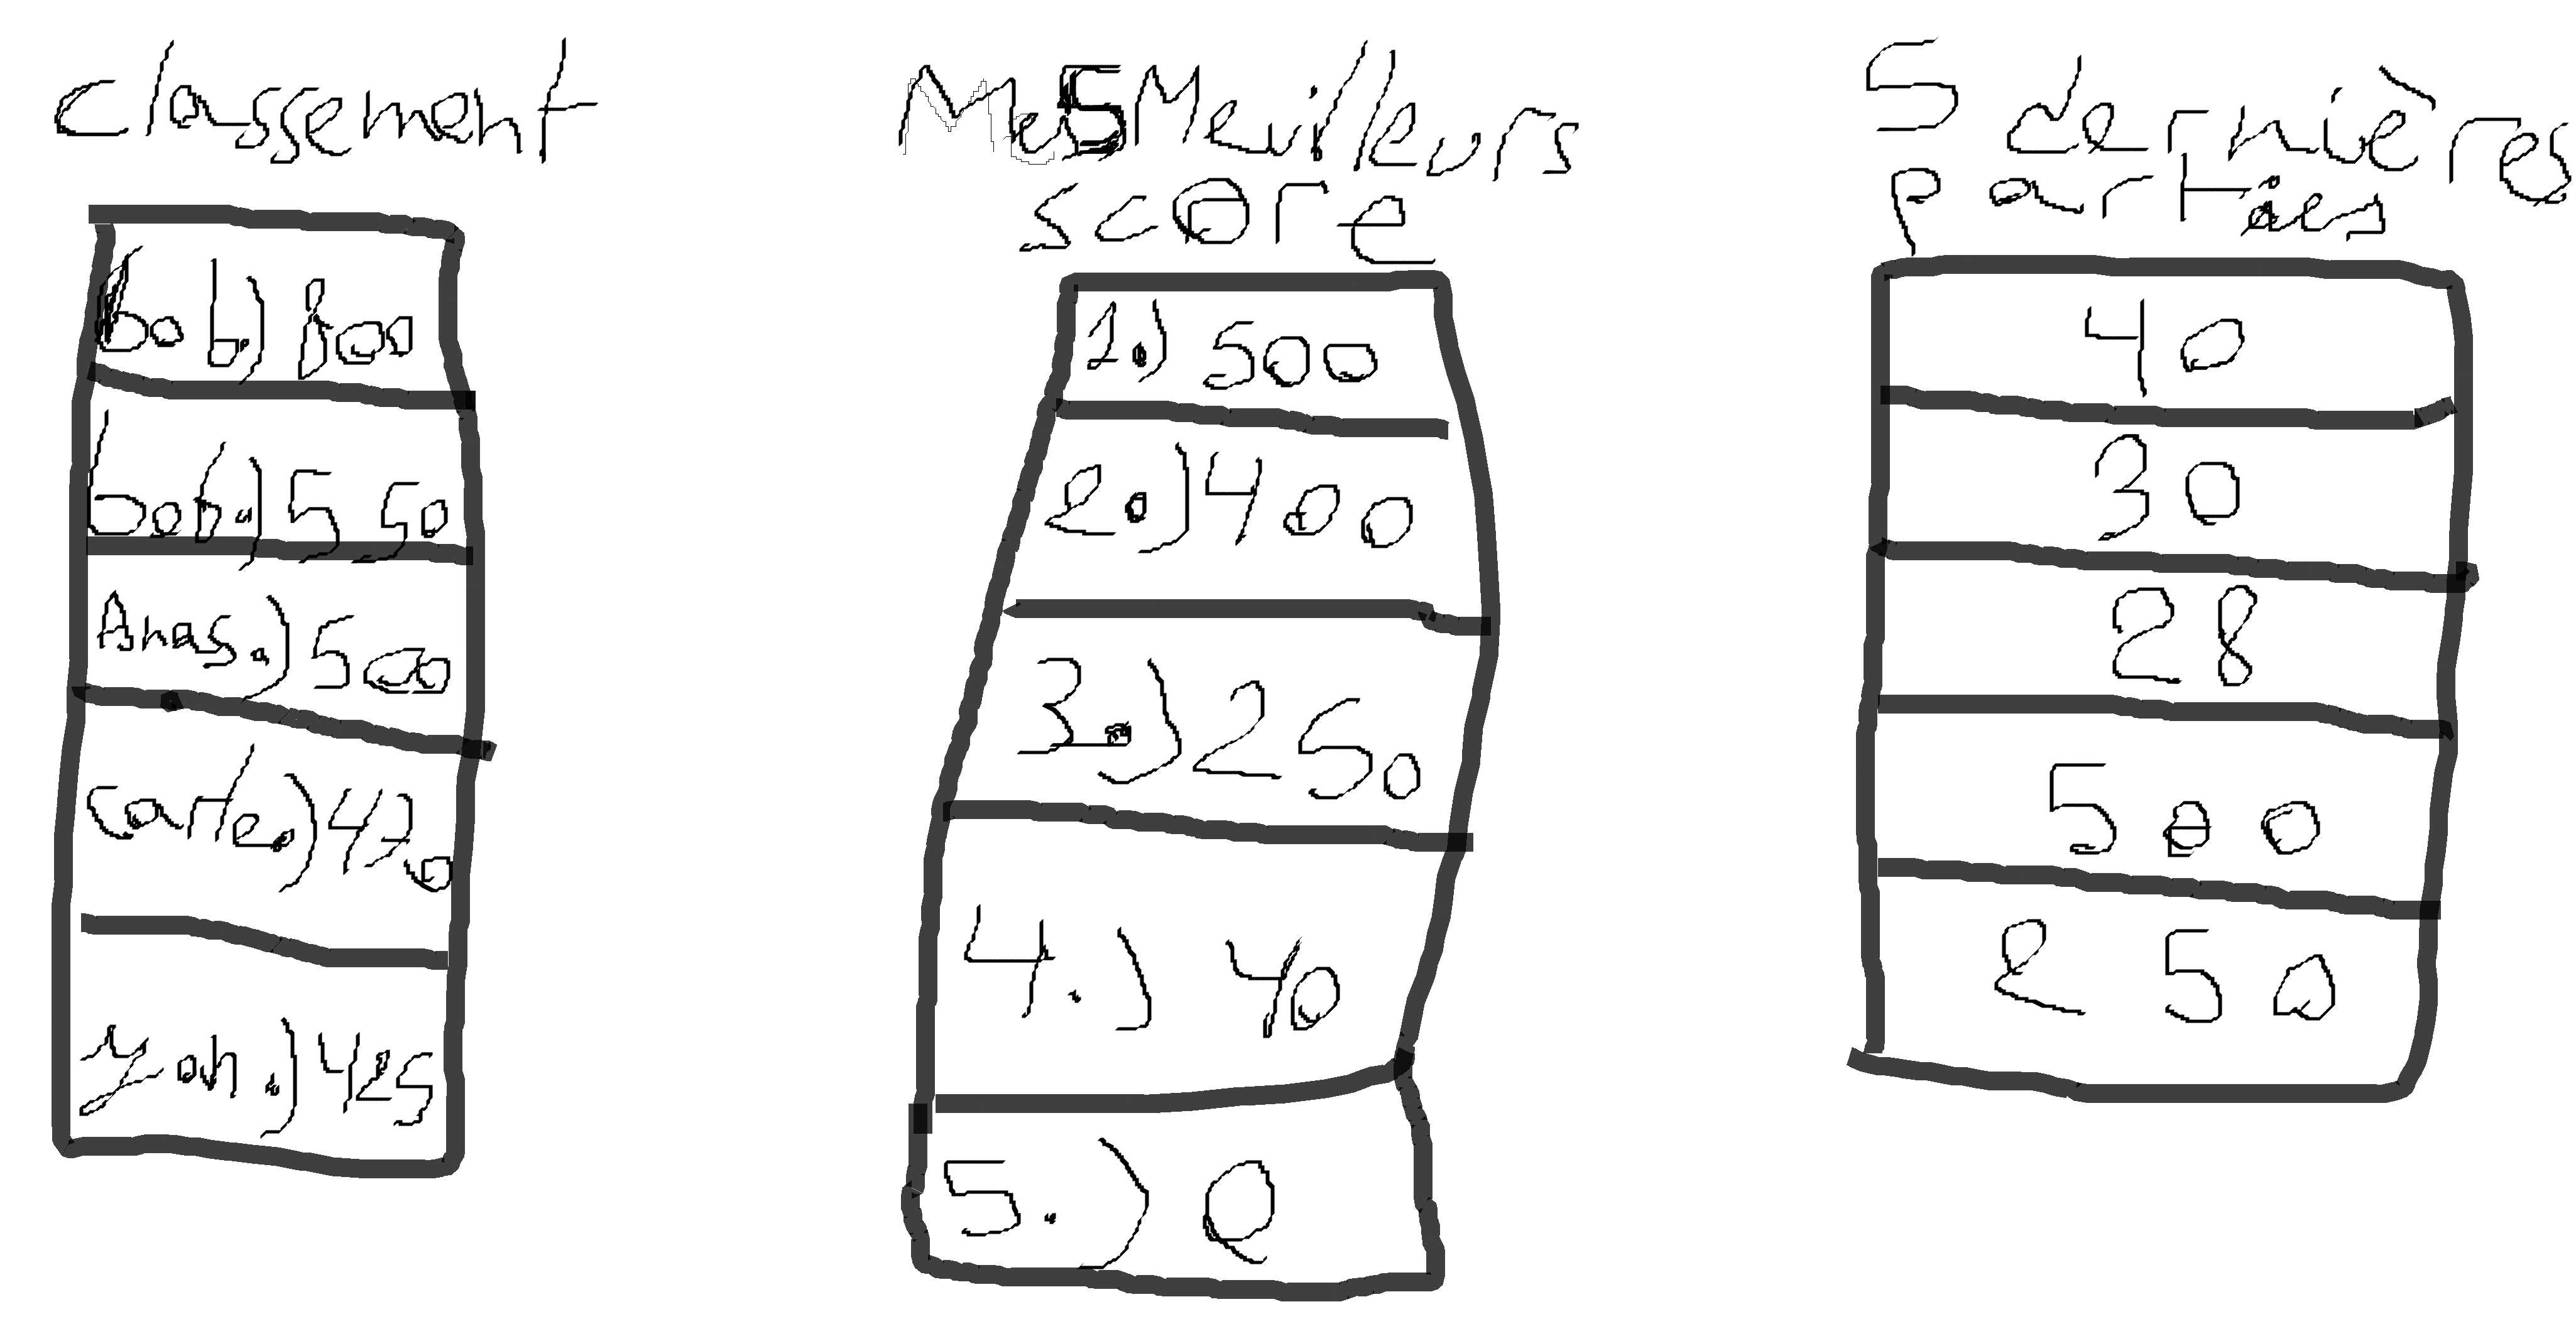 classement
bob.) 800
bob.) 550
Anas.) 500
Carle.) 470
Yoh.) 425
Mes 5 Meilleurs
score
1.) 500
2.) 400
3.) 250
4.) 40
5.) 0
5 dernières
parties
40
30
28
500
250